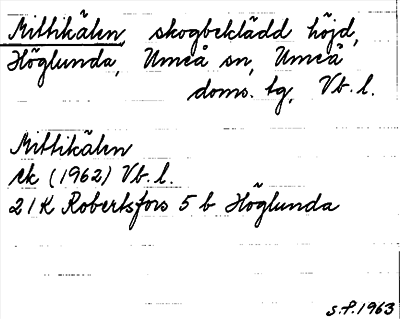 Mittikälen, skogbeklädd höjd,
Höglunda, Umeå sn, Umeå
doms. tg, Vb. l.
Mittikälen
ek (1962) Vb. l.
21K Robertsfors 5 b Höglunda
s.f. 1963